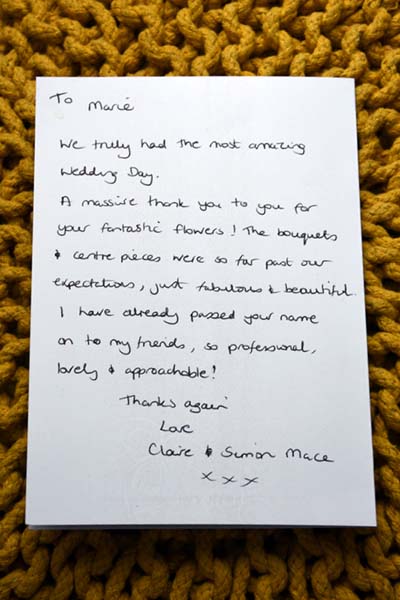 To Marie
We truly had the most amazing
Wedding Day.
A massive thank you to you for
your fantastic flowers! The bouquets
& centre pieces were so far past our
expectations, just fabulous & beautiful.
I have already passed your name
on to my friends, so professional,
lovely & approachable!
Thanks again
Love
Claire & Simon Mace
x x x